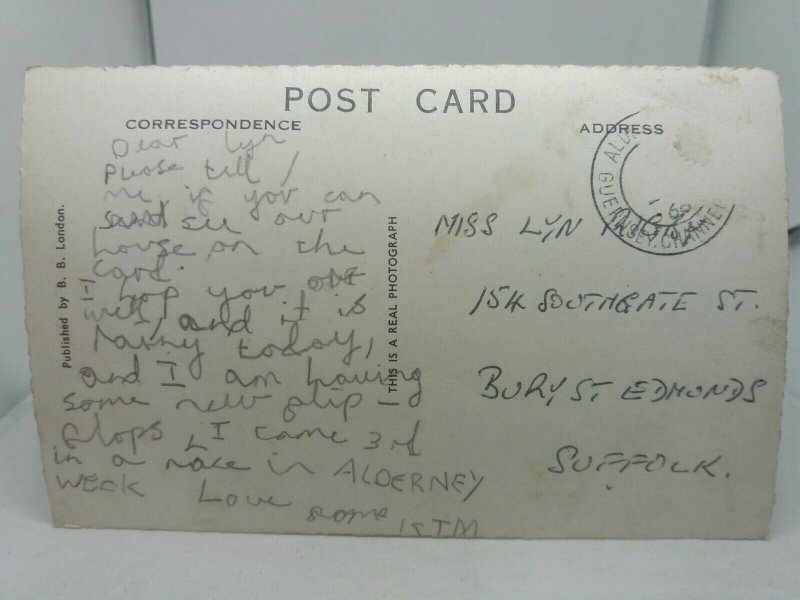 POST CARD
CORRESPONDENCE
ADDRESS
Dear Lyn
please tell
me if you can
see our
house on the
card.
I hop you are
well, and it is
rainy today,
and I am having
some new flip -
flops, I came 3rd
in a race in ALDERNEY
WEEK Love
Published by B. B. London.
THIS IS A REAL PHOTOGRAPH
GUERNSEY. CHANNEL
MISS LYN
15A SOUTHGATE ST.
BURY ST EDMONDS
SUFFOLK.